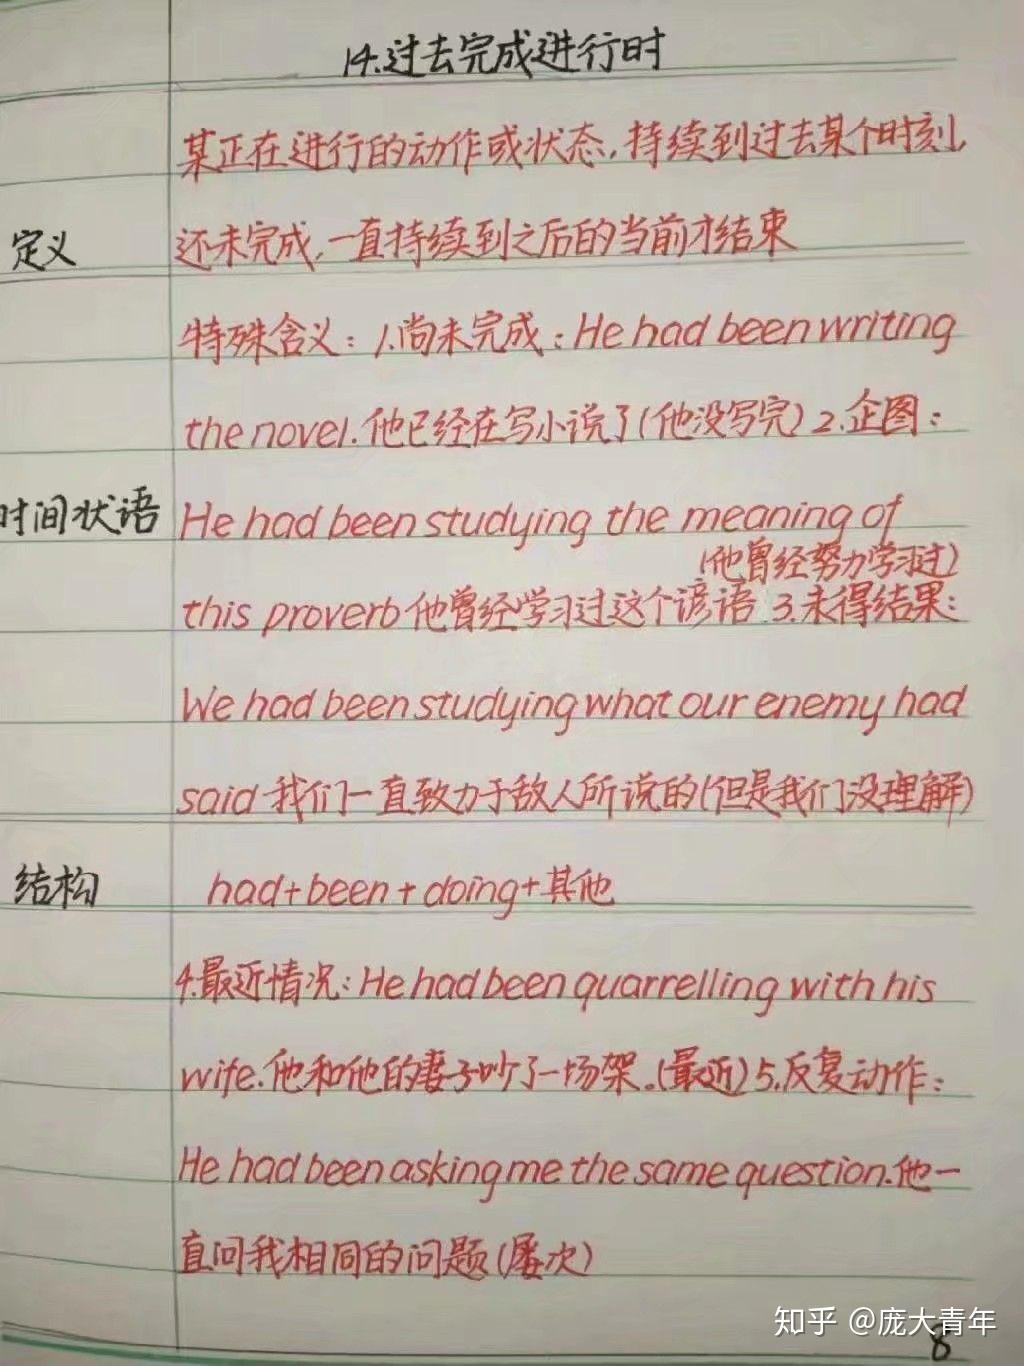 14.过去完成进行时
某正在进行的动作或状态,持续到过去某个时刻,
定义
还未完成,一直持续到之后的当前才结束
特殊含义:1.尚未完成:He had been writing
the novel.他已经在写小说了(他没写完)2.企图:
时间状语
He had been studying the meaning of
(他曾经努力学习过)
this proverb 他曾经学习过这个谚语.3.未得结果:
We had been studying what our enemy had
said 我们一直致力于敌人所说的(但是我们没理解)
结构
had+been+doing+其他
4.最近情况:He had been quarrelling with his
wife.他和他的妻子吵了一场架.(最近)5.反复动作:
He had been asking me the same question.他一
直问我相同的问题(屡次)
知乎 @庞大青年
8